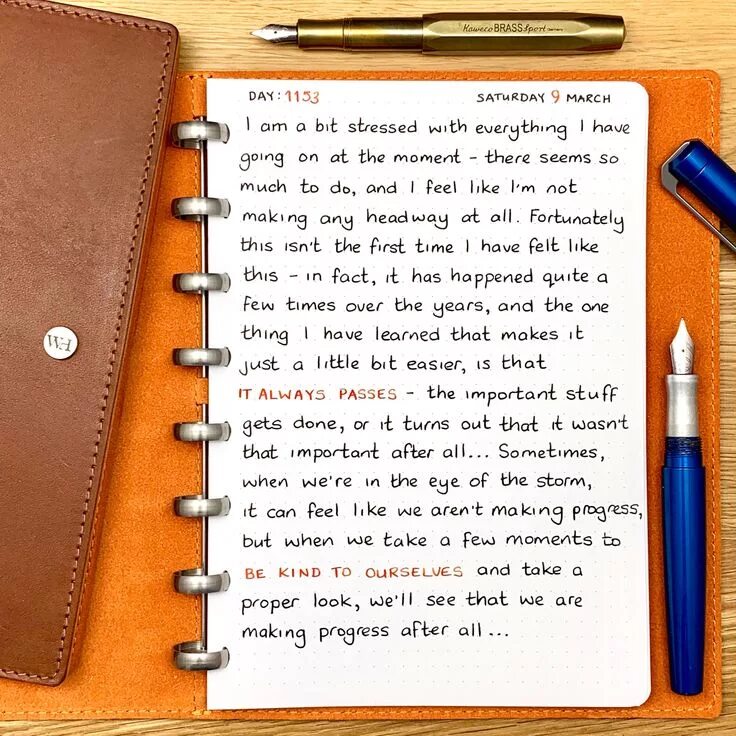 Kaweco BRASS Sport
DAY: 1153 SATURDAY 9 MARCH
I am a bit stressed with everything I have
going on at the moment - there seems so
much to do, and I feel like I'm not
making any headway at all. Fortunately
this isn't the first time I have felt like
this - in fact, it has happened quite a
few times over the years, and the one
thing I have learned that makes it
just a little bit easier, is that
IT ALWAYS PASSES - the important stuff
gets done, or it turns out that it wasn't
that important after all... Sometimes,
when we're in the eye of the storm,
it can feel like we aren't making progress,
but when we take a few moments to
BE KIND TO OURSELVES and take a
proper look, we'll see that we are
making progress after all...